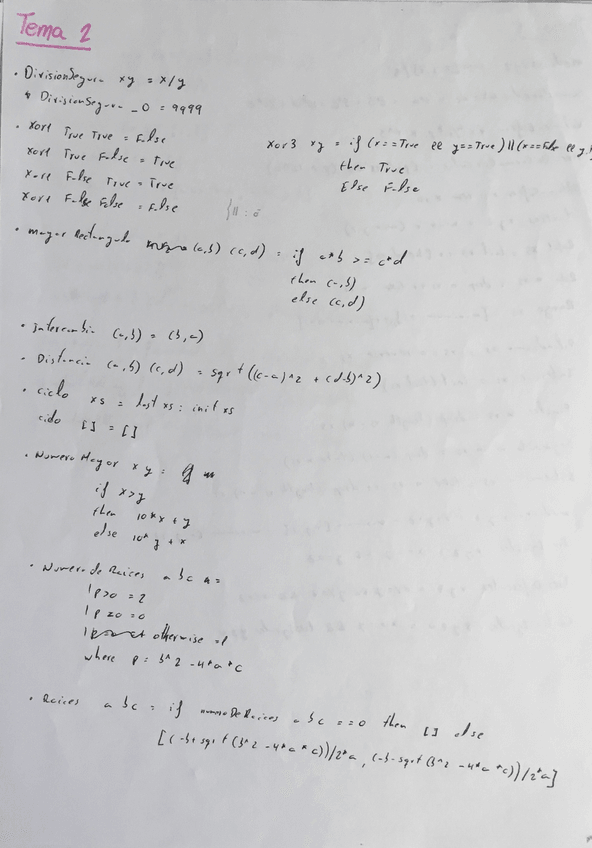 Tema 2
• DivisionSegura xy = x/y
DivisionSegura _0 = 9999
• Xor1 True True = False
Xor1 True False = True
Xor1 False True = True
Xor1 False False = False
xor3 xy = if (x==True && y==True) || (x==False && y
then True
Else False
{ || : ó
• mayor Rectangulo (a,b) (c,d) = if a*b >= c*d
then (a,b)
else (c,d)
• Intercambia (a,b) = (b,a)
• Distancia (a,b) (c,d) = sqrt((c-a)^2 + (d-b)^2)
• ciclo xs = last xs : init xs
ciclo [] = []
• Numero Mayor x y =
if x>y
then 10*x + y
else 10*y + x
• Numero de Raices a b c =
| p>0 = 2
| p<0 = 0
| otherwise = 1
where p = b^2 -4*a*c
• Raices a b c = if numeroDeRaices a b c == 0 then [] else
[(-b+sqrt(b^2 -4*a*c))/2*a, (-b-sqrt(b^2 -4*a*c))/2*a]